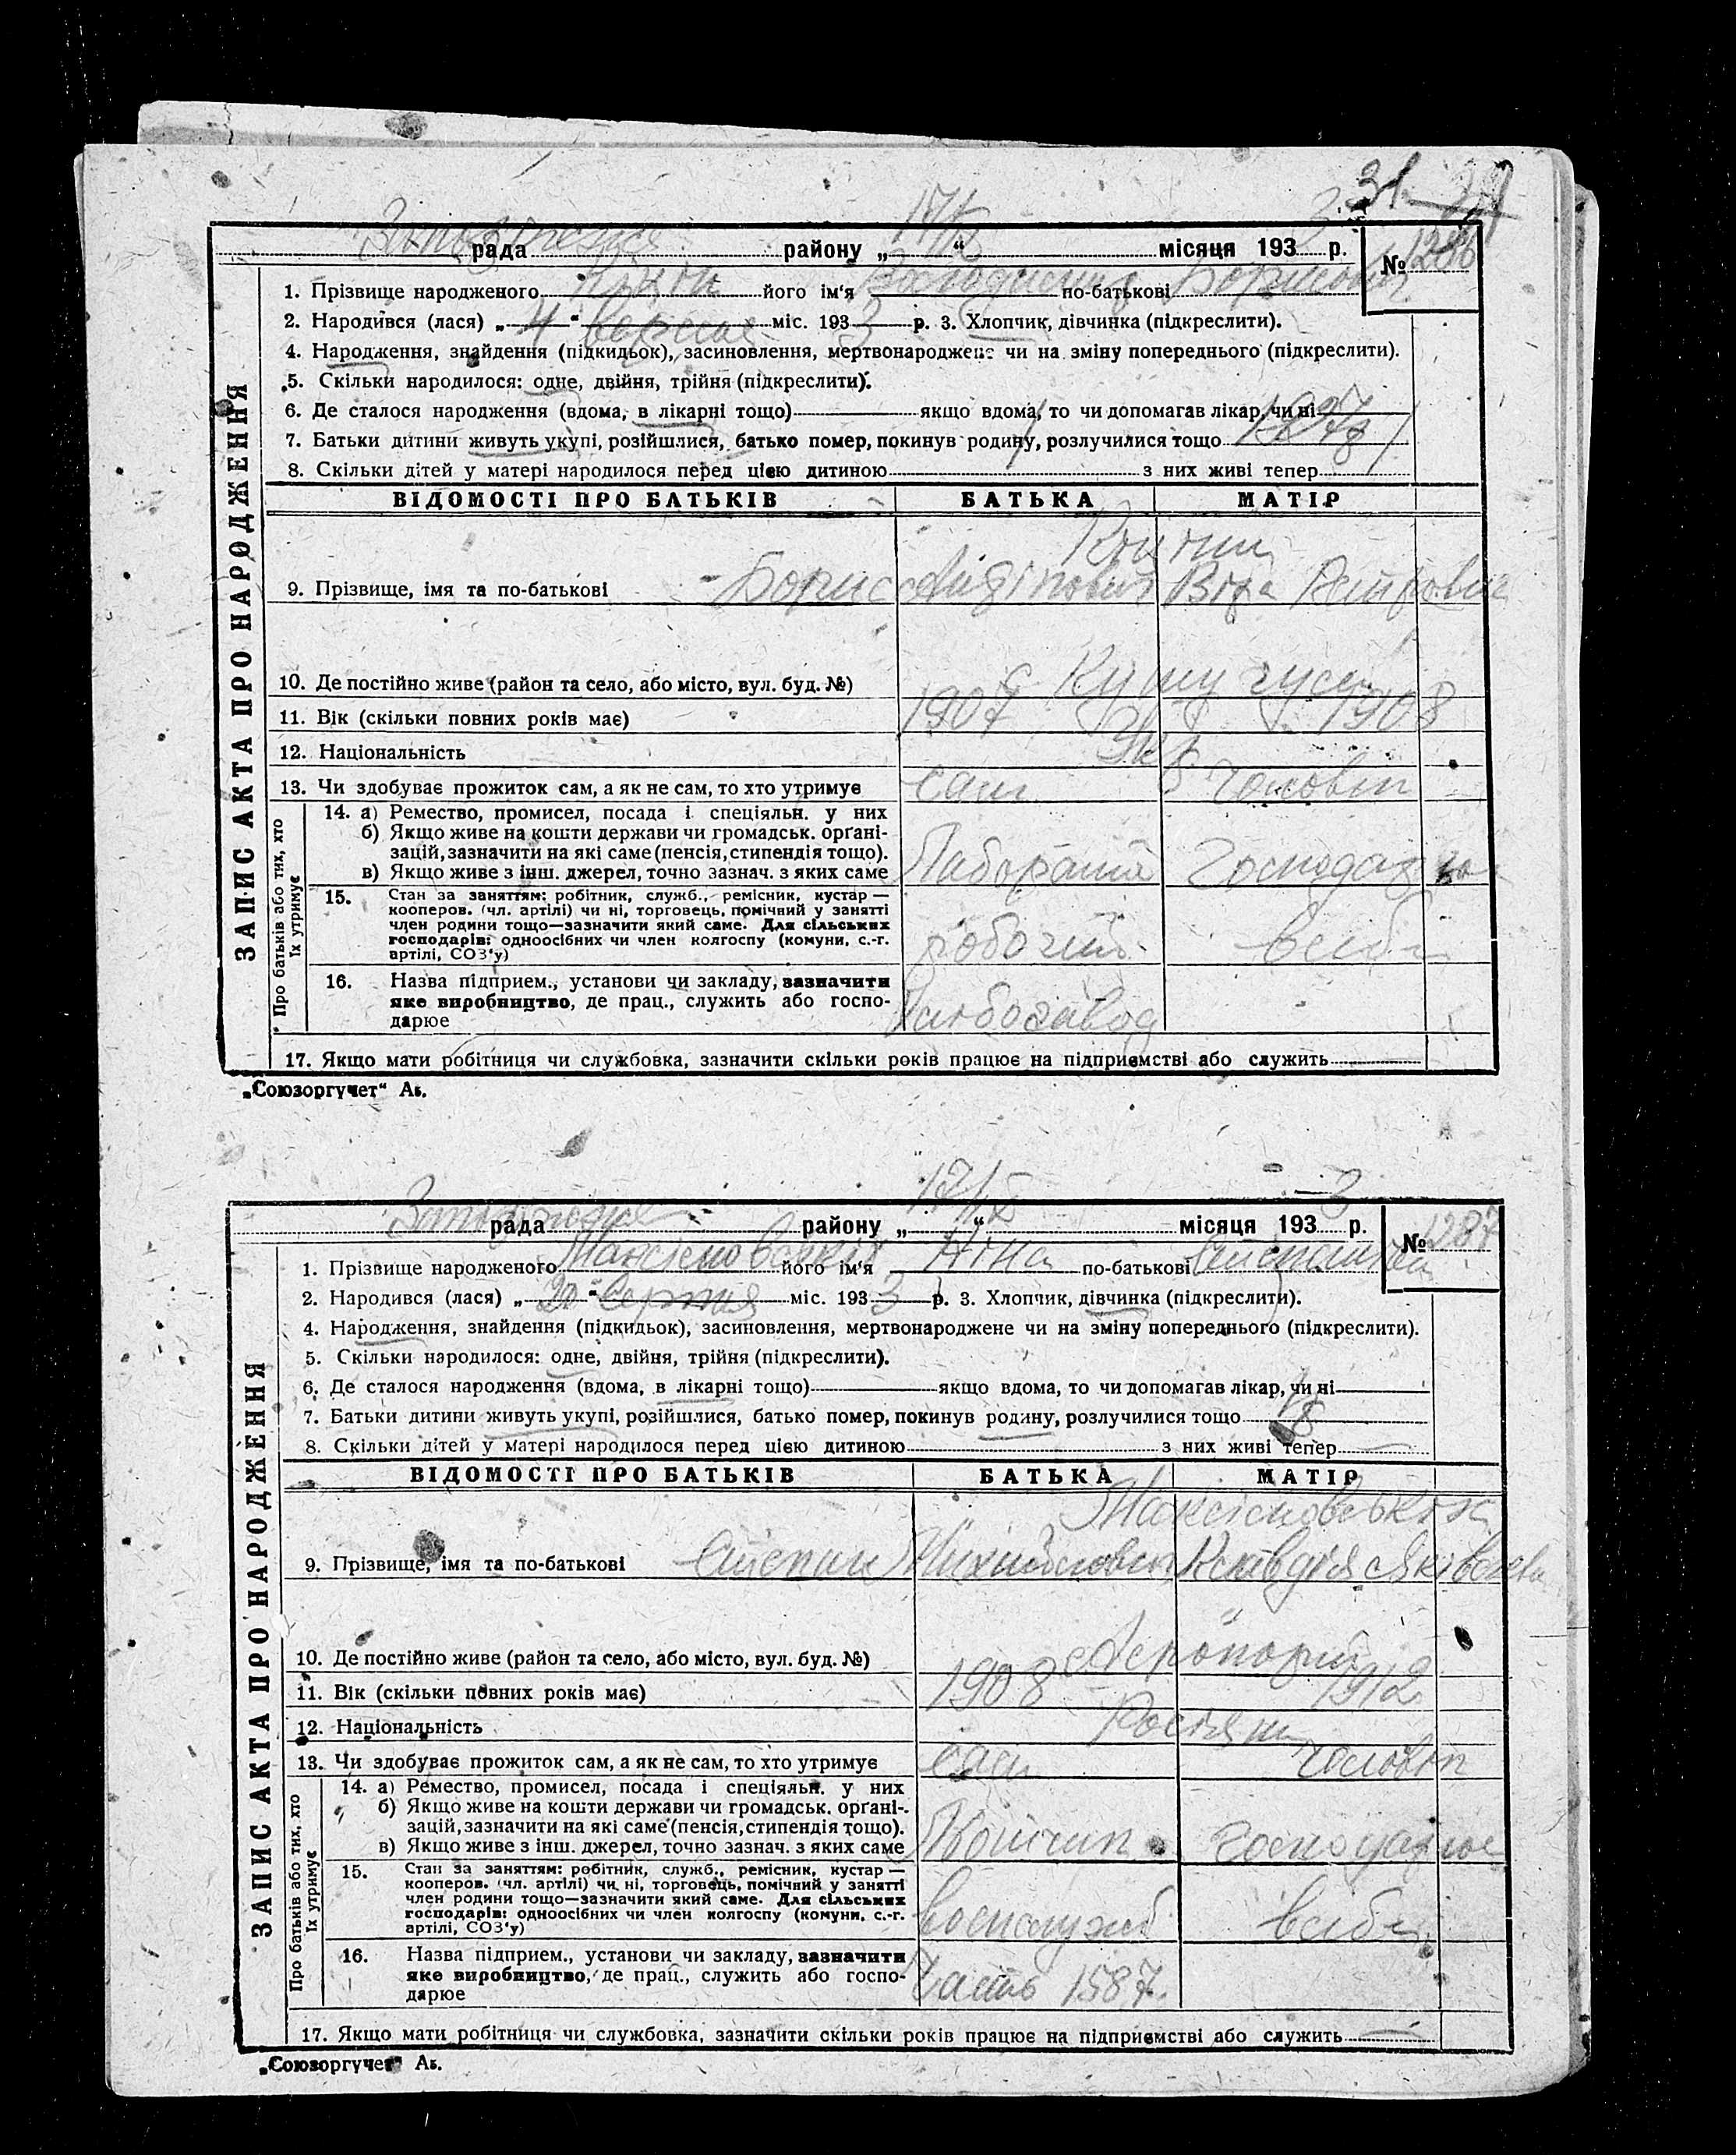 31
рада району „17/IX“ місяця 1933 р. № 1286
1. Прізвище народженого його ім'я Володимир по-батькові Борисович
2. Народився (лася) „4“ вересня міс. 1933 р. 3. Хлопчик, дівчинка (підкреслити).
4. Народження, знайдення (підкидьок), засиновлення, мертвонароджене чи на зміну попереднього (підкреслити).
5. Скільки народилося: одне, двійня, трійня (підкреслити).
6. Де сталося народження (вдома, в лікарні тощо) якщо вдома, то чи допомагав лікар, чи ні
7. Батьки дитини живуть укупі, розійшлися, батько помер, покинув родину, розлучилися тощо
8. Скільки дітей у матері народилося перед цією дитиною з них живі тепер
ВІДОМОСТІ ПРО БАТЬКІВ БАТЬКА МАТІР
9. Прізвище, імя та по-батькові Борис Віра
10. Де постійно живе (район та село, або місто, вул. буд. №)
11. Вік (скільки повних років має) 1907 1908
12. Національність Укр
13. Чи здобуває прожиток сам, а як не сам, то хто утримує сам чоловік
14. а) Ремество, промисел, посада і спеціяльн. у них
б) Якщо живе на кошти держави чи громадськ. орґані-
зацій, зазначити на які саме (пенсія, стипендія тощо).
в) Якщо живе з інш. джерел, точно зазнач. з яких саме Лаборант Господарює
15. Стан за заняттям: робітник, служб., ремісник, кустар —
кооперов. (чл. артілі) чи ні, торговець, помічний у занятті
член родини тощо—зазначити який саме. Для сільських
господарів: одноосібних чи член колгоспу (комуни, с.-г.
артілі, СОЗ'у) робочий вдома
16. Назва підприєм., установи чи закладу, зазначити
яке виробництво, де прац., служить або госпо-
дарюе
17. Якщо мати робітниця чи службовка, зазначити скільки років працює на підприємстві або служить
ЗАПИС АКТА ПРО НАРОДЖЕННЯ
Про батьків або тих, хто
їх утримує
„Союзоргучет“ Аъ.
рада району „17/IX“ місяця 1933 р. № 1287
1. Прізвище народженого його ім'я Ніна по-батькові
2. Народився (лася) „20“ серпня міс. 1933 р. 3. Хлопчик, дівчинка (підкреслити).
4. Народження, знайдення (підкидьок), засиновлення, мертвонароджене чи на зміну попереднього (підкреслити).
5. Скільки народилося: одне, двійня, трійня (підкреслити).
6. Де сталося народження (вдома, в лікарні тощо) якщо вдома, то чи допомагав лікар, чи ні
7. Батьки дитини живуть укупі, розійшлися, батько помер, покинув родину, розлучилися тощо
8. Скільки дітей у матері народилося перед цією дитиною з них живі тепер
ВІДОМОСТІ ПРО БАТЬКІВ БАТЬКА МАТІР
9. Прізвище, імя та по-батькові Степан Михайлович Клавдія Яківлевна
10. Де постійно живе (район та село, або місто, вул. буд. №) Аеропорт
11. Вік (скільки повних років має) 1908 1912
12. Національність Росіяни
13. Чи здобуває прожиток сам, а як не сам, то хто утримує сам чоловік
14. а) Ремество, промисел, посада і спеціяльн. у них
б) Якщо живе на кошти держави чи громадськ. орґані-
зацій, зазначити на які саме (пенсія, стипендія тощо).
в) Якщо живе з інш. джерел, точно зазнач. з яких саме господарює
15. Стан за заняттям: робітник, служб., ремісник, кустар —
кооперов. (чл. артілі) чи ні, торговець, помічний у занятті
член родини тощо—зазначити який саме. Для сільських
господарів: одноосібних чи член колгоспу (комуни, с.-г.
артілі, СОЗ'у) воєнслужб
16. Назва підприєм., установи чи закладу, зазначити
яке виробництво, де прац., служить або госпо-
дарюе Часть 1587.
17. Якщо мати робітниця чи службовка, зазначити скільки років працює на підприємстві або служить
ЗАПИС АКТА ПРО НАРОДЖЕННЯ
Про батьків або тих, хто
їх утримує
„Союзоргучет“ Аъ.